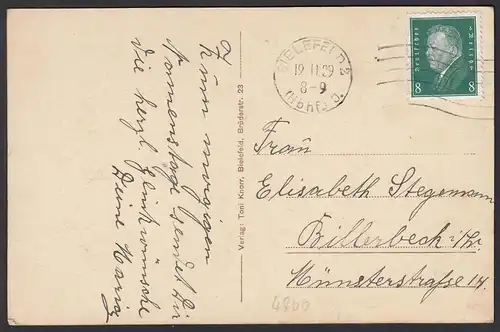 Zum morgigen
Namenstage sendet Dir
die herzl. Glückwünsche
Deine Maria
Verlag: Toni Knorr, Bielefeld, Brüderstr. 23
BIELEFELD 2
19.11.29
8-9
(Bhf) o.
Deutsches Reich
8 8
Frau
Elisabeth Stegemann
Billerbeck i/W.
Münsterstraße 14.
4800